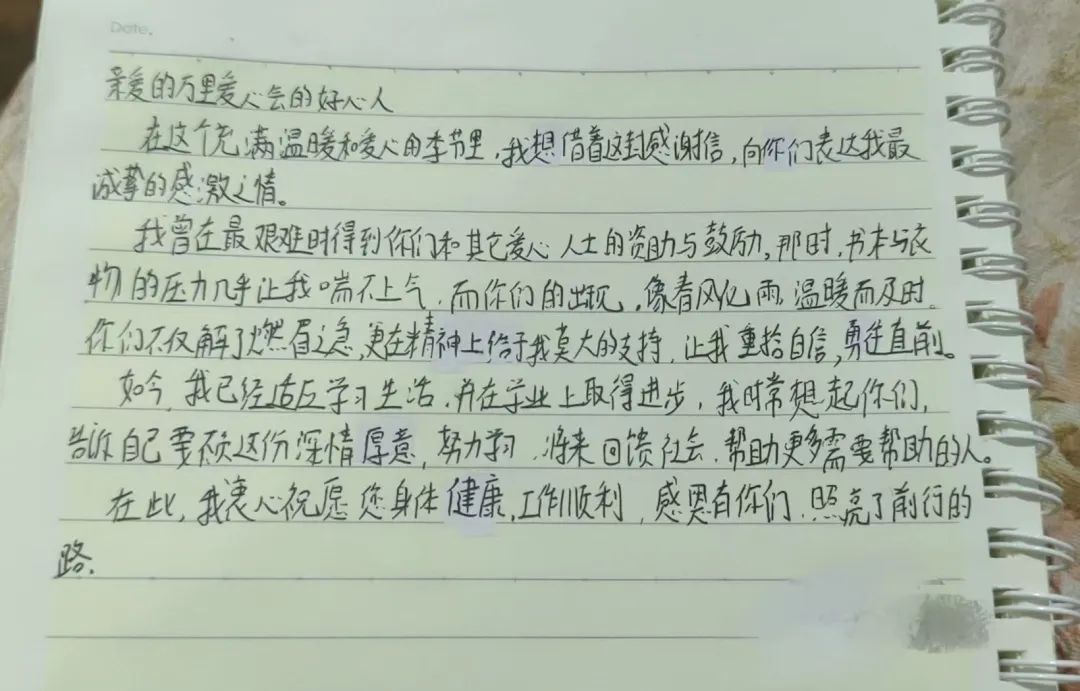 Date.
亲爱的万里爱心会的好心人
在这个充满温暖和爱心的季节里，我想借着这封感谢信，向你们表达我最
诚挚的感激之情。
我曾在最艰难时得到你们和其它爱心人士的资助与鼓励，那时，书本与衣
物的压力几乎让我喘不上气，而你们的出现，像春风化雨，温暖而及时。
你们不仅解了燃眉之急，更在精神上给予我莫大的支持，让我重拾自信，勇往直前。
如今，我已经适应学习生活，并在学业上取得进步，我时常想起你们，
告诉自己要不负这份深情厚意，努力学习，将来回馈社会，帮助更多需要帮助的人。
在此，我衷心祝愿您身体健康，工作顺利，感恩有你们，照亮了前行的
路.